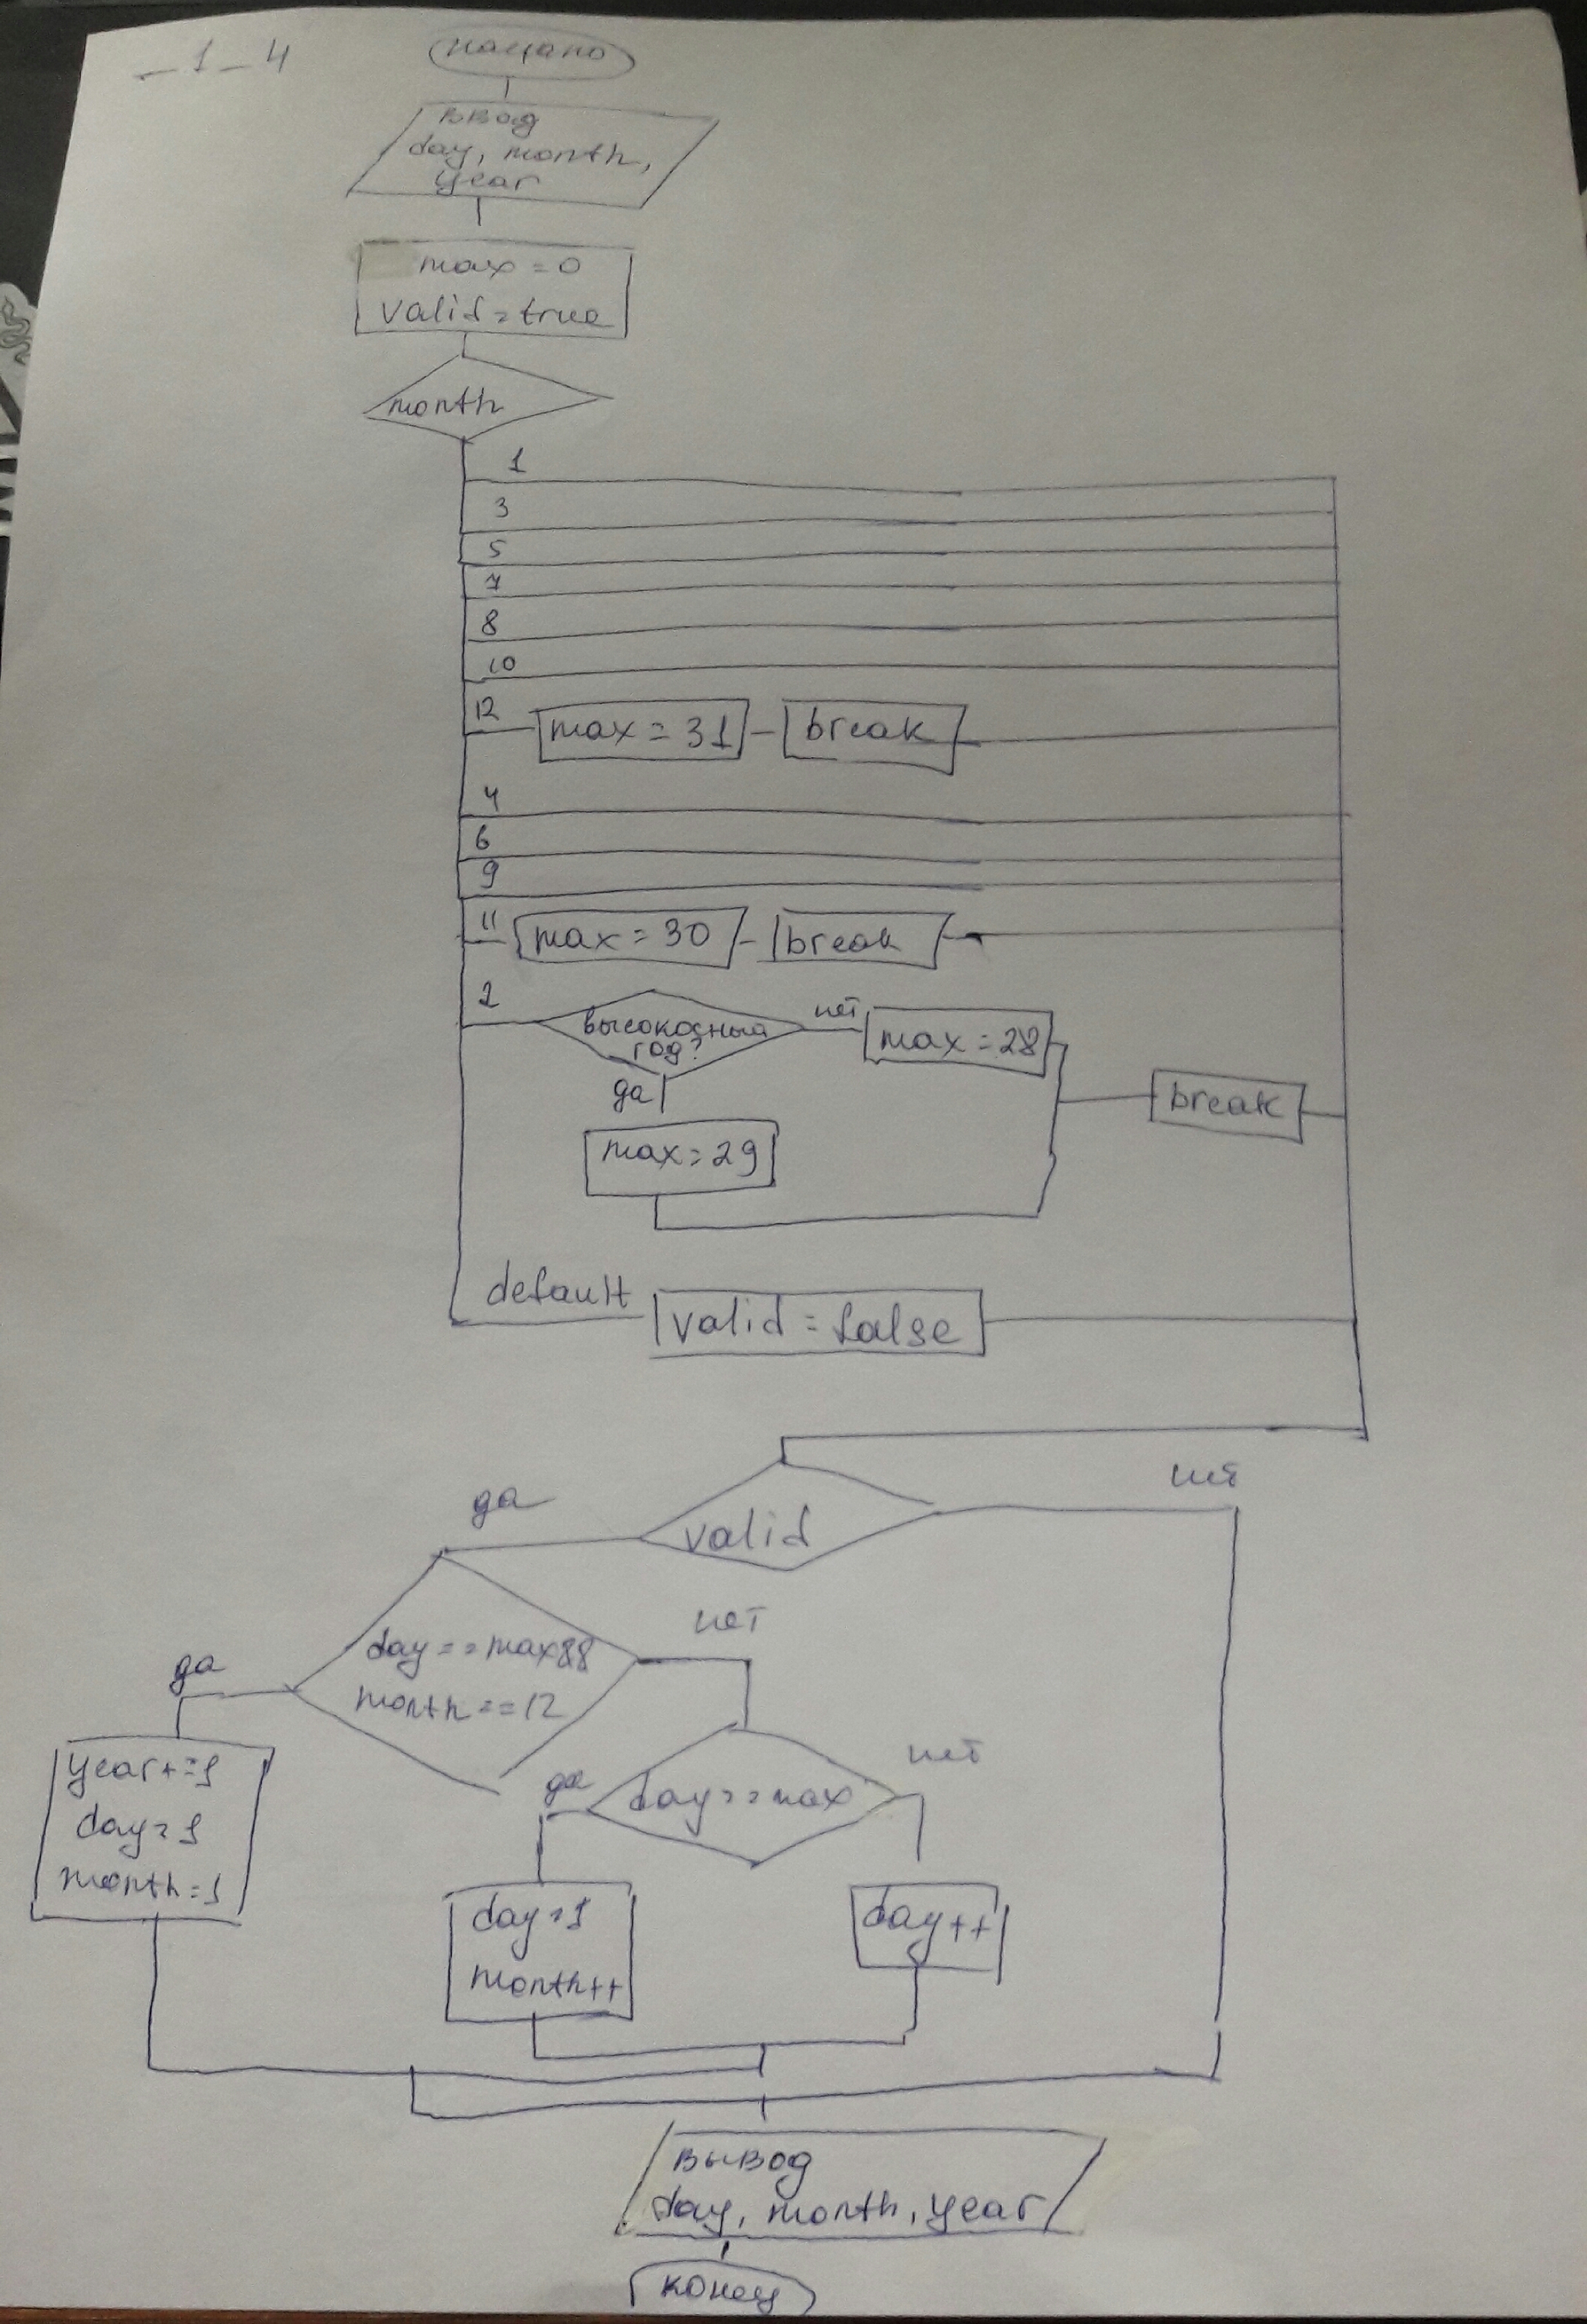 _1_4
начало
ввод
day, month,
year
max=0
valid=true
month
1
3
5
7
8
10
12
max=31
break
4
6
9
11
max=30
break
2
высокосный
год?
нет
max=28
да
break
max=29
default
valid=false
да
valid
нет
day==max&&
month==12
нет
да
year+=1
day=1
month=1
да
day==max
нет
day=1
month++
day++
вывод
day, month, year
конец